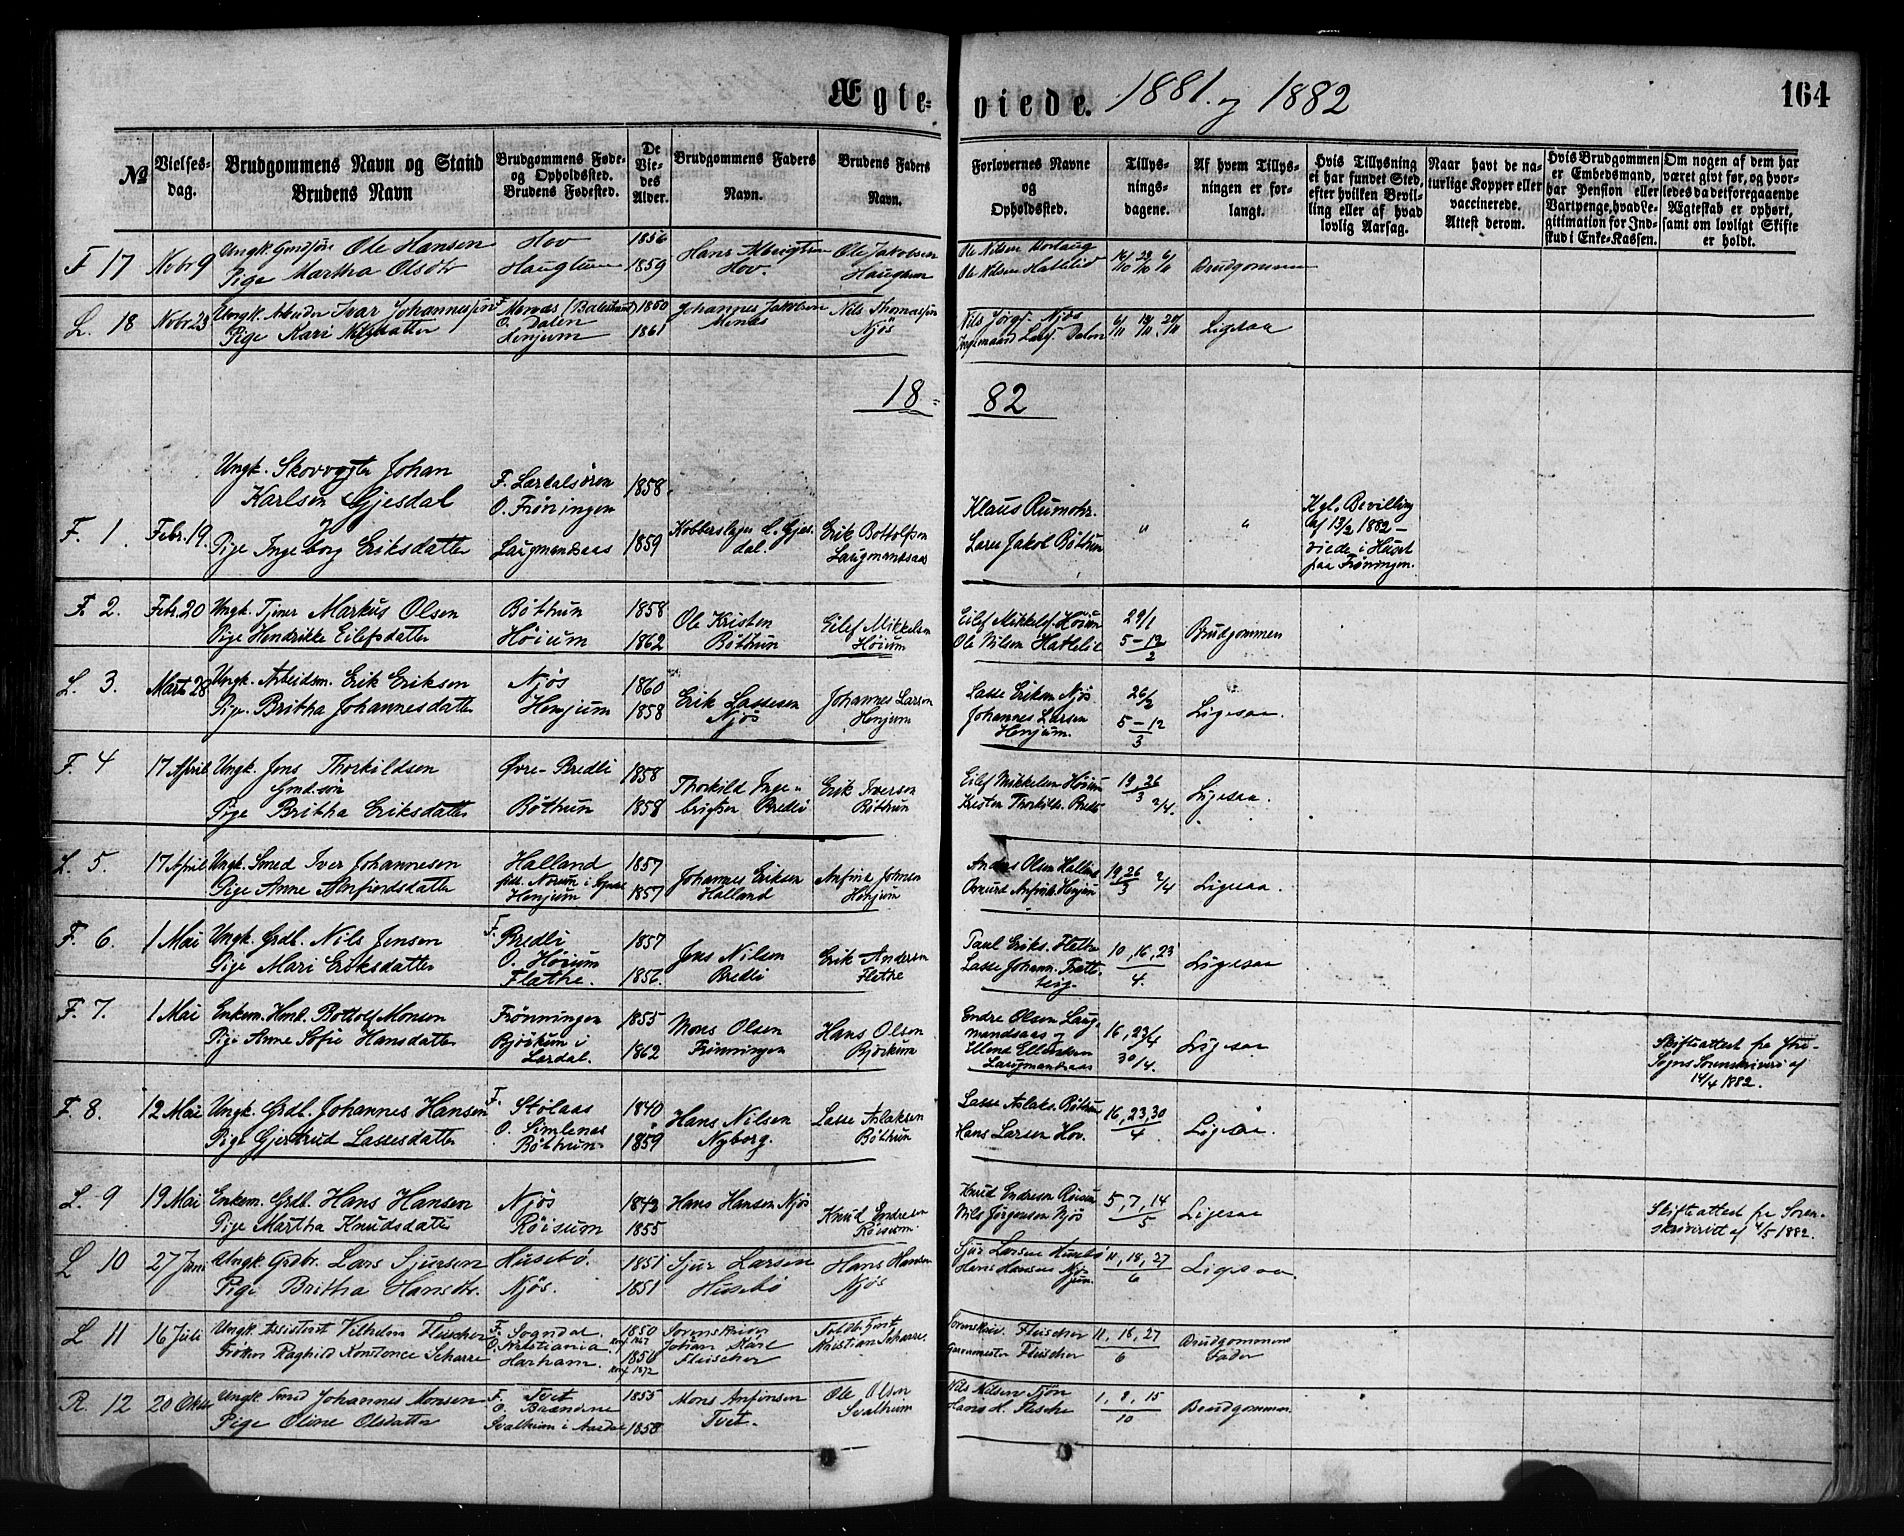 Ægte=viede. 1881. og 1882
164
№
Vielses-dag.
Brudgommens Navn og Stand
Brudens Navn
Brudgommens Føde- og Opholdssted.
Brudens Fødested.
De Viedes Alder.
Brudgommens Faders Navn.
Brudens Faders Navn.
Forlovernes Navne og Opholdssted.
Tillysningsdagene.
Af hvem Tillysningen er forlangt.
Hvis Tillysning ei har fundet Sted, efter hvilken Bevilling eller af hvad lovlig Aarsag.
Naar havt de naturlige Kopper eller vaccinerede. Attest derom.
Hvis Brudgommen er Embedsmand, har Pension eller Vartpenge, hvad Legitimation for Indskud i Enke-Kassen.
Om nogen af dem har været givt før, og hvorledes da det foregaaende Ægteskab er ophørt, samt om lovligt Skifte er holdt.
F 17 Novbr 9 Ungk. Ole Hansen Hov 1856 Hov. Ole Jakobsen Haugtun
Pige Martha Olsdtr Haugtun 1859 Ole Nilsen Hatlelid Brudgommen
L. 18 Novbr 23 Ungk. Arbeider Ivar Johannessen F. Menæs (Balestrand) 1860 Johannes Jakobsen Menæs Nils Thomassen Njøs
O. Dalen
Pige Kari Henjum 1861 Nils Jørgs. Njøs Dalen Ligesaa
18=82
Ungk. Skovvogter Johan Karlsen Gjesdal F. Lærdalsøren O. Frøningen 1858.
F. 1. Febr. 19. Pige Ingeborg Eriksdatter Laugmandsaas 1859 Kobberslager C. Gjesdal. Erik Bottolfsen Laugmandsaas
Klaus Rumohr. Lars Jakob Bøthun " " Kgl. Bevilling af 13/2 1882 – viede i Huset paa Frøningen.
F. 2. Febr. 20 Ungk. Tjener Markus Olsen Bøthun 1858 Ole Kristen Bøthun Eilef Mikkelsen Høium
Pige Hendrikke Eilefsdatter Høium 1862
Eilef Mikkels. Høium Ole Nilsen Hatlelid 29/1 5–12/2 Brudgommen
L. 3. Marts 28 Ungk. Arbeidsm. Erik Eriksen Njøs 1860 Erik Lassesen Njøs Johannes Larsen Henjum
Pige Britha Johannesdatter Henjum 1858
Lasse Eriksen Njøs Johannes Larsen Henjum. 26/2 5–12/3 Ligesaa.
F. 4 17 April Ungk. Jens Thorkildsen Gmd.søn Øvre-Bredli 1858 Thorkild Ingebrigtsen Bredli Erik Iverson Bøthun
Pige Britha Eriksdatter Bøthun 1858
Eilef Mikkelsen Høium Kristen Thorkilds. Bredli 19, 26/3 2/4. Ligesaa.
L. 5 17 April Ungk. Smed Iver Johannesen Halland 1857 Johannes Eriksen Halland Anfind Johnsen Henjum
Pige Anne Anfindsdatter Henjum 1857
Anders Olsen Halland Henjum 19, 26/3 2/4 Ligesaa.
F. 6. 1 Mai Ungk. Grdb. Nils Jensen F. Bredli O. Høium 1857 Jens Nilsen Bredli Erik Andersen Flethe
Pige Mari Eriksdatter Flathe. 1856.
Paul Eriks. Flethe Lasse Johann. 10, 16, 23/4. Ligesaa
F. 7. 1 Mai Enkem. Hmd. Bottolf Monsen Frønningen 1855 Mons Olsen Frønningen Hans Olsen Bjørkum
Pige Anne Sofie Hansdatter Bjørkum i Lærdal. 1862
Endre Olsen Laugmandsaas og Laugmandsaas 16, 23/4 30/4. Ligesaa Skifteattest fra Sogns Sorenskriveri af 14/4 1882.
F. 8. 12 Mai Ungk. Grdb. Johannes Hansen F. Stølaas O. Simlenæs 1840 Hans Nilsen Nyborg. Lasse Aslaksen Bøthun
Pige Gjertrud Lassesdatter Bøthun 1859
Lasse Aslaks. Bøthun Hans Larsen Hov. 16, 23, 30/4. Ligesaa.
L. 9 19 Mai Enkem. Grdb. Hans Hansen Njøs 1842 Hans Hansen Njøs Knud Endresen Røisum
Pige Martha Knudsdatter Røisum 1855
Knud Endresen Røisum Nils Jørgensen Njøs 5, 7, 14/5 Ligesaa Skifteattest fra Sorenskriveriet af 4/5 1882.
L 10 27 Juni Ungk. Grdbr. Lars Sjursen Husebø. 1851 Sjur Larsen Husebø Hans Hansen Njøs
Pige Britha Hansdtr. Njøs. 1851
Sjur Larsen Husebø Hans Hansen Njøs 11, 18, 27/6 Ligesaa.
L 11 16 Juli Ungk. Assistent Vilhelm Fleischer F. Sogndal. O. Kristiania. 1850 Sorenskriver Johan Karl Fleischer Kristian Scharre.
Frøken Raghild Konstance Scharre Harham. 1856
Sorenskriv. Fleischer Fleischer 11, 18, 27/6 Brudgommens Fader
R. 12 20 Oktbr Ungk. Smed Johannes Monsen F. Tvet 1855 Mons Anfinsen Tvet. Ole Olsen Svalhum
Pige Oline Olsdatter Svalhum i Aardal 1858
Nils Nilsen Tjøn Hans H. Flesche 1, 8, 15/10 Brudgommen